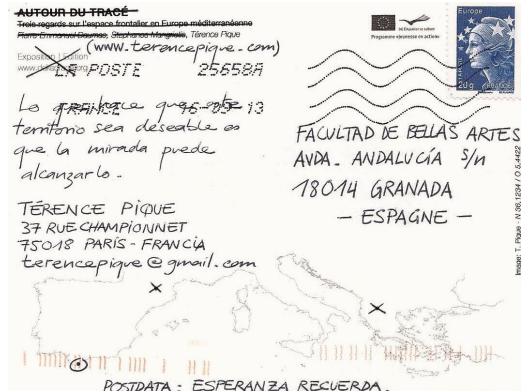 AUTOUR DU TRACÉ
Trois regards sur l'espace frontalier en Europe méditerranéenne
Pierre Emmanuel Daumas, Stephanos Mangriotis, Térence Pique
(www.terencepique.com)
Exposition | Edition
LA POSTE 25658A
FRANCE 16-05-13
Lo que hace que este
territorio sea deseable es
que la mirada puede
alcanzarlo.
TÉRENCE PIQUE
37 RUE CHAMPIONNET
75018 PARÍS - FRANCIA
terencepique@gmail.com
Programme «Jeunesse en action»
Europe
20g
FRANCE
FACULTAD DE BELLAS ARTES
AVDA. ANDALUCÍA S/n
18014 GRANADA
- ESPAGNE -
Image: T. Pique - N 36,1234 / O 5,4422
POSTDATA: ESPERANZA RECUERDA.